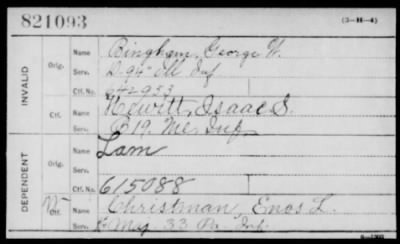 821093
(3-H-4)
INVALID
Orig.
Name Bingham, George W.
Serv. D. 94" Ill Inf
Ctf. No. 642953
Ctf. Name Hewitt, Isaac S.
Serv. B 19, Me. Inf
DEPENDENT
Orig.
Name Lam
Serv.
Ctf. No. 615088
Ctf. Name Christman Enos L.
Serv. My 33 Pa Inf